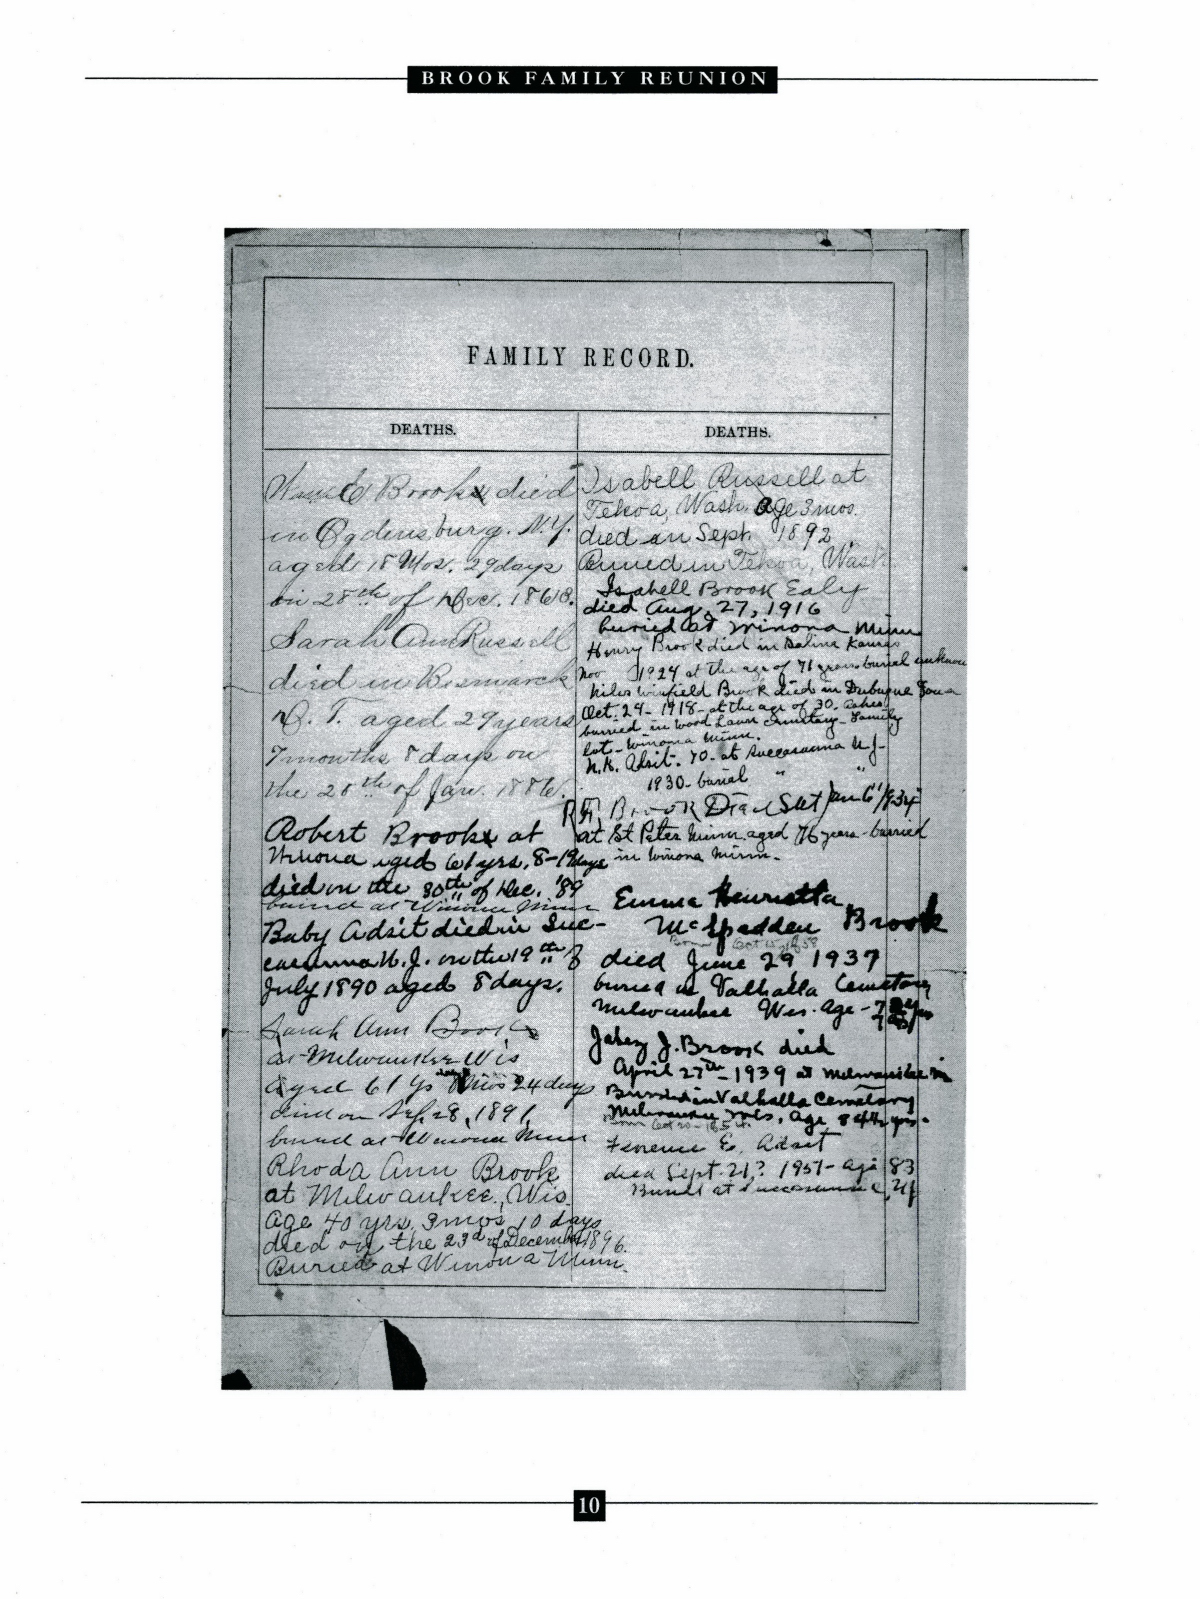 BROOK FAMILY REUNION
FAMILY RECORD.
DEATHS.
Brooks died
in Ogdensburg. N.Y.
aged 18 Mos. 29 days
on 28th of Dec. 1868.
Sarah Ann Russell
died in Bismarck
D. T. aged 29 years
7 months 8 days on
the 28th of Jan. 1886.
Robert Brooks at
Winona aged 61 yrs, 8-19 days
died on the 30th of Dec. '89
buried at Winona Minn
Baby Adsit died in Suc-
casunna N.J. on the 19th of
July 1890 aged 8 days.
Sarah Ann Brook
at Milwaukee Wis
Aged 61 Ys mos 24 days
died on Sep. 28, 1891,
buried at Winona Minn
Rhoda Ann Brook
at Milwaukee, Wis.
Age 40 yrs. 3 mos, 10 days
died on the 23d of December 1896.
Buried at Winona Minn.
DEATHS.
Isabell Russell at
Tekoa, Wash. age 3 mos.
died in Sept. 1892.
Buried in Tekoa, Wash
Isabell Brook Ealy
died Aug. 27, 1916
buried at Winona Minn
Henry Brook died in Salina Kansas
Nov 1924 at the age of 71 years burial unknown
Niles Winfield Brook died in Dubuque Iowa
Oct. 24 - 1918 - at the age of 30. Ashes
burried in Wood Lawn Cemetary - Family
lot - Winona Minn.
N.K. Adsit. 70 - at Succasunna N.J-
1930 - burial " "
R.F. Brook Died Sat Jan 6 1934
at St Peter Minn. aged 76 years - burried
in Winona Minn -
Emma Henrietta
McSpadden Brook
Born Oct 1858
died June 29, 1937
buried in Valhalla Cemetary
Milwaukee Wis. Age - 78 yrs
Jabez J. Brook died
April 27th - 1939 at Milwaukee
Burried in Valhalla Cemetary
Milwaukee Wis, age 84 yrs.
Born Oct
Florence E. Adsit
died Sept. 21? 1951 - age 83
Buried at Succasunna, NJ
10